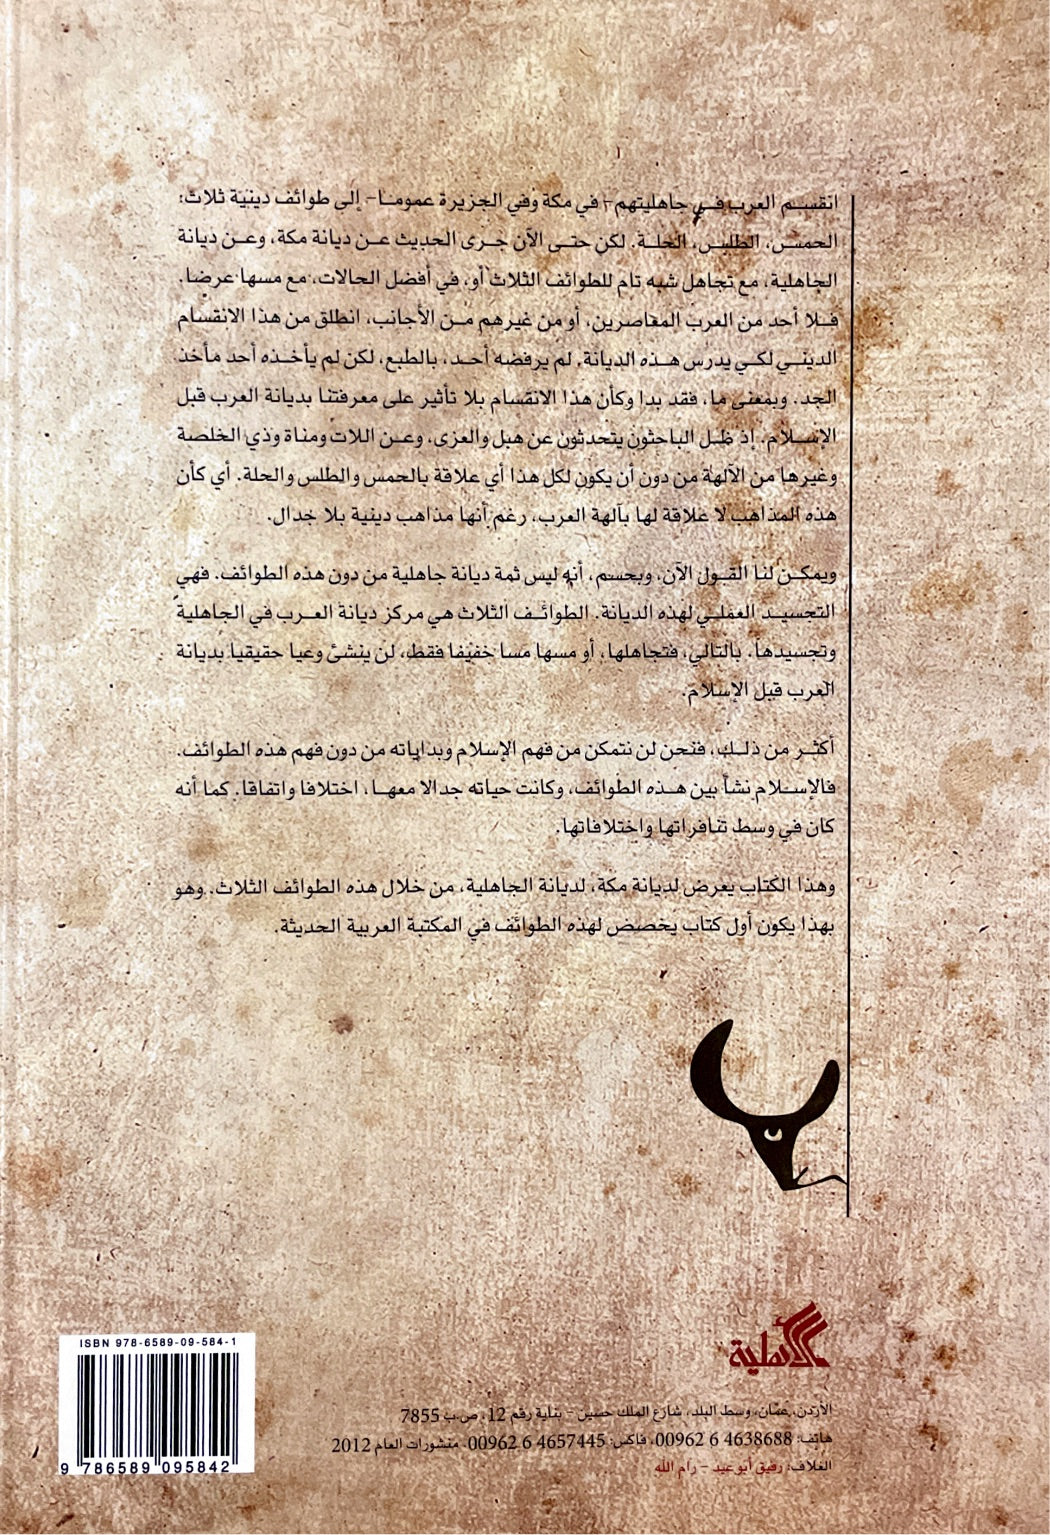 انقسم العرب في جاهليتهم- في مكة وفي الجزيرة عموما- إلى طوائف دينية ثلاث:
الحمس، الطلس، الحلة. لكن حتى الآن جرى الحديث عن ديانة مكة، وعن ديانة
الجاهلية، مع تجاهل شبه تام للطوائف الثلاث أو، في أفضل الحالات، مع مسها عرضا.
فلا أحد من العرب المعاصرين، أو من غيرهم من الأجانب، انطلق من هذا الانقسام
الديني لكي يدرس هذه الديانة. لم يرفضه أحد، بالطبع، لكن لم يأخذه أحد مأخذ
الجد. وبمعنى ما، فقد بدا وكأن هذا الانقسام بلا تأثير على معرفتنا بديانة العرب قبل
الإسلام. إذ ظل الباحثون يتحدثون عن هبل والعزى، وعن اللات ومناة وذي الخلصة
وغيرها من الآلهة من دون أن يكون لكل هذا أي علاقة بالحمس والطلس والحلة. أي كأن
هذه المذاهب لا علاقة لها بآلهة العرب، رغم أنها مذاهب دينية بلا جدال.
ويمكن لنا القول الآن، وبحسم، أنه ليس ثمة ديانة جاهلية من دون هذه الطوائف. فهي
التجسيد العملي لهذه الديانة. الطوائف الثلاث هي مركز ديانة العرب في الجاهلية
وتجسيدها. بالتالي، فتجاهلها، أو مسها مسا خفيفا فقط، لن ينشئ وعيا حقيقيا بديانة
العرب قبل الإسلام.
أكثر من ذلك، فنحن لن نتمكن من فهم الإسلام وبداياته من دون فهم هذه الطوائف.
فالإسلام نشأ بين هذه الطوائف، وكانت حياته جدالا معها، اختلافا واتفاقا. كما أنه
كان في وسط تنافراتها واختلافاتها.
وهذا الكتاب يعرض لديانة مكة، لديانة الجاهلية، من خلال هذه الطوائف الثلاث. وهو
بهذا يكون أول كتاب يخصص لهذه الطوائف في المكتبة العربية الحديثة.
الأهلية
الأردن، عمّان، وسط البلد، شارع الملك حسين - بناية رقم 12، ص.ب 7855
هاتف: 4638688 6 00962، فاكس: 4657445 6 00962، منشورات العام 2012
الغلاف: رفيق أبو عيد - رام الله
ISBN 978-6589-09-584-1
9 786589 095842